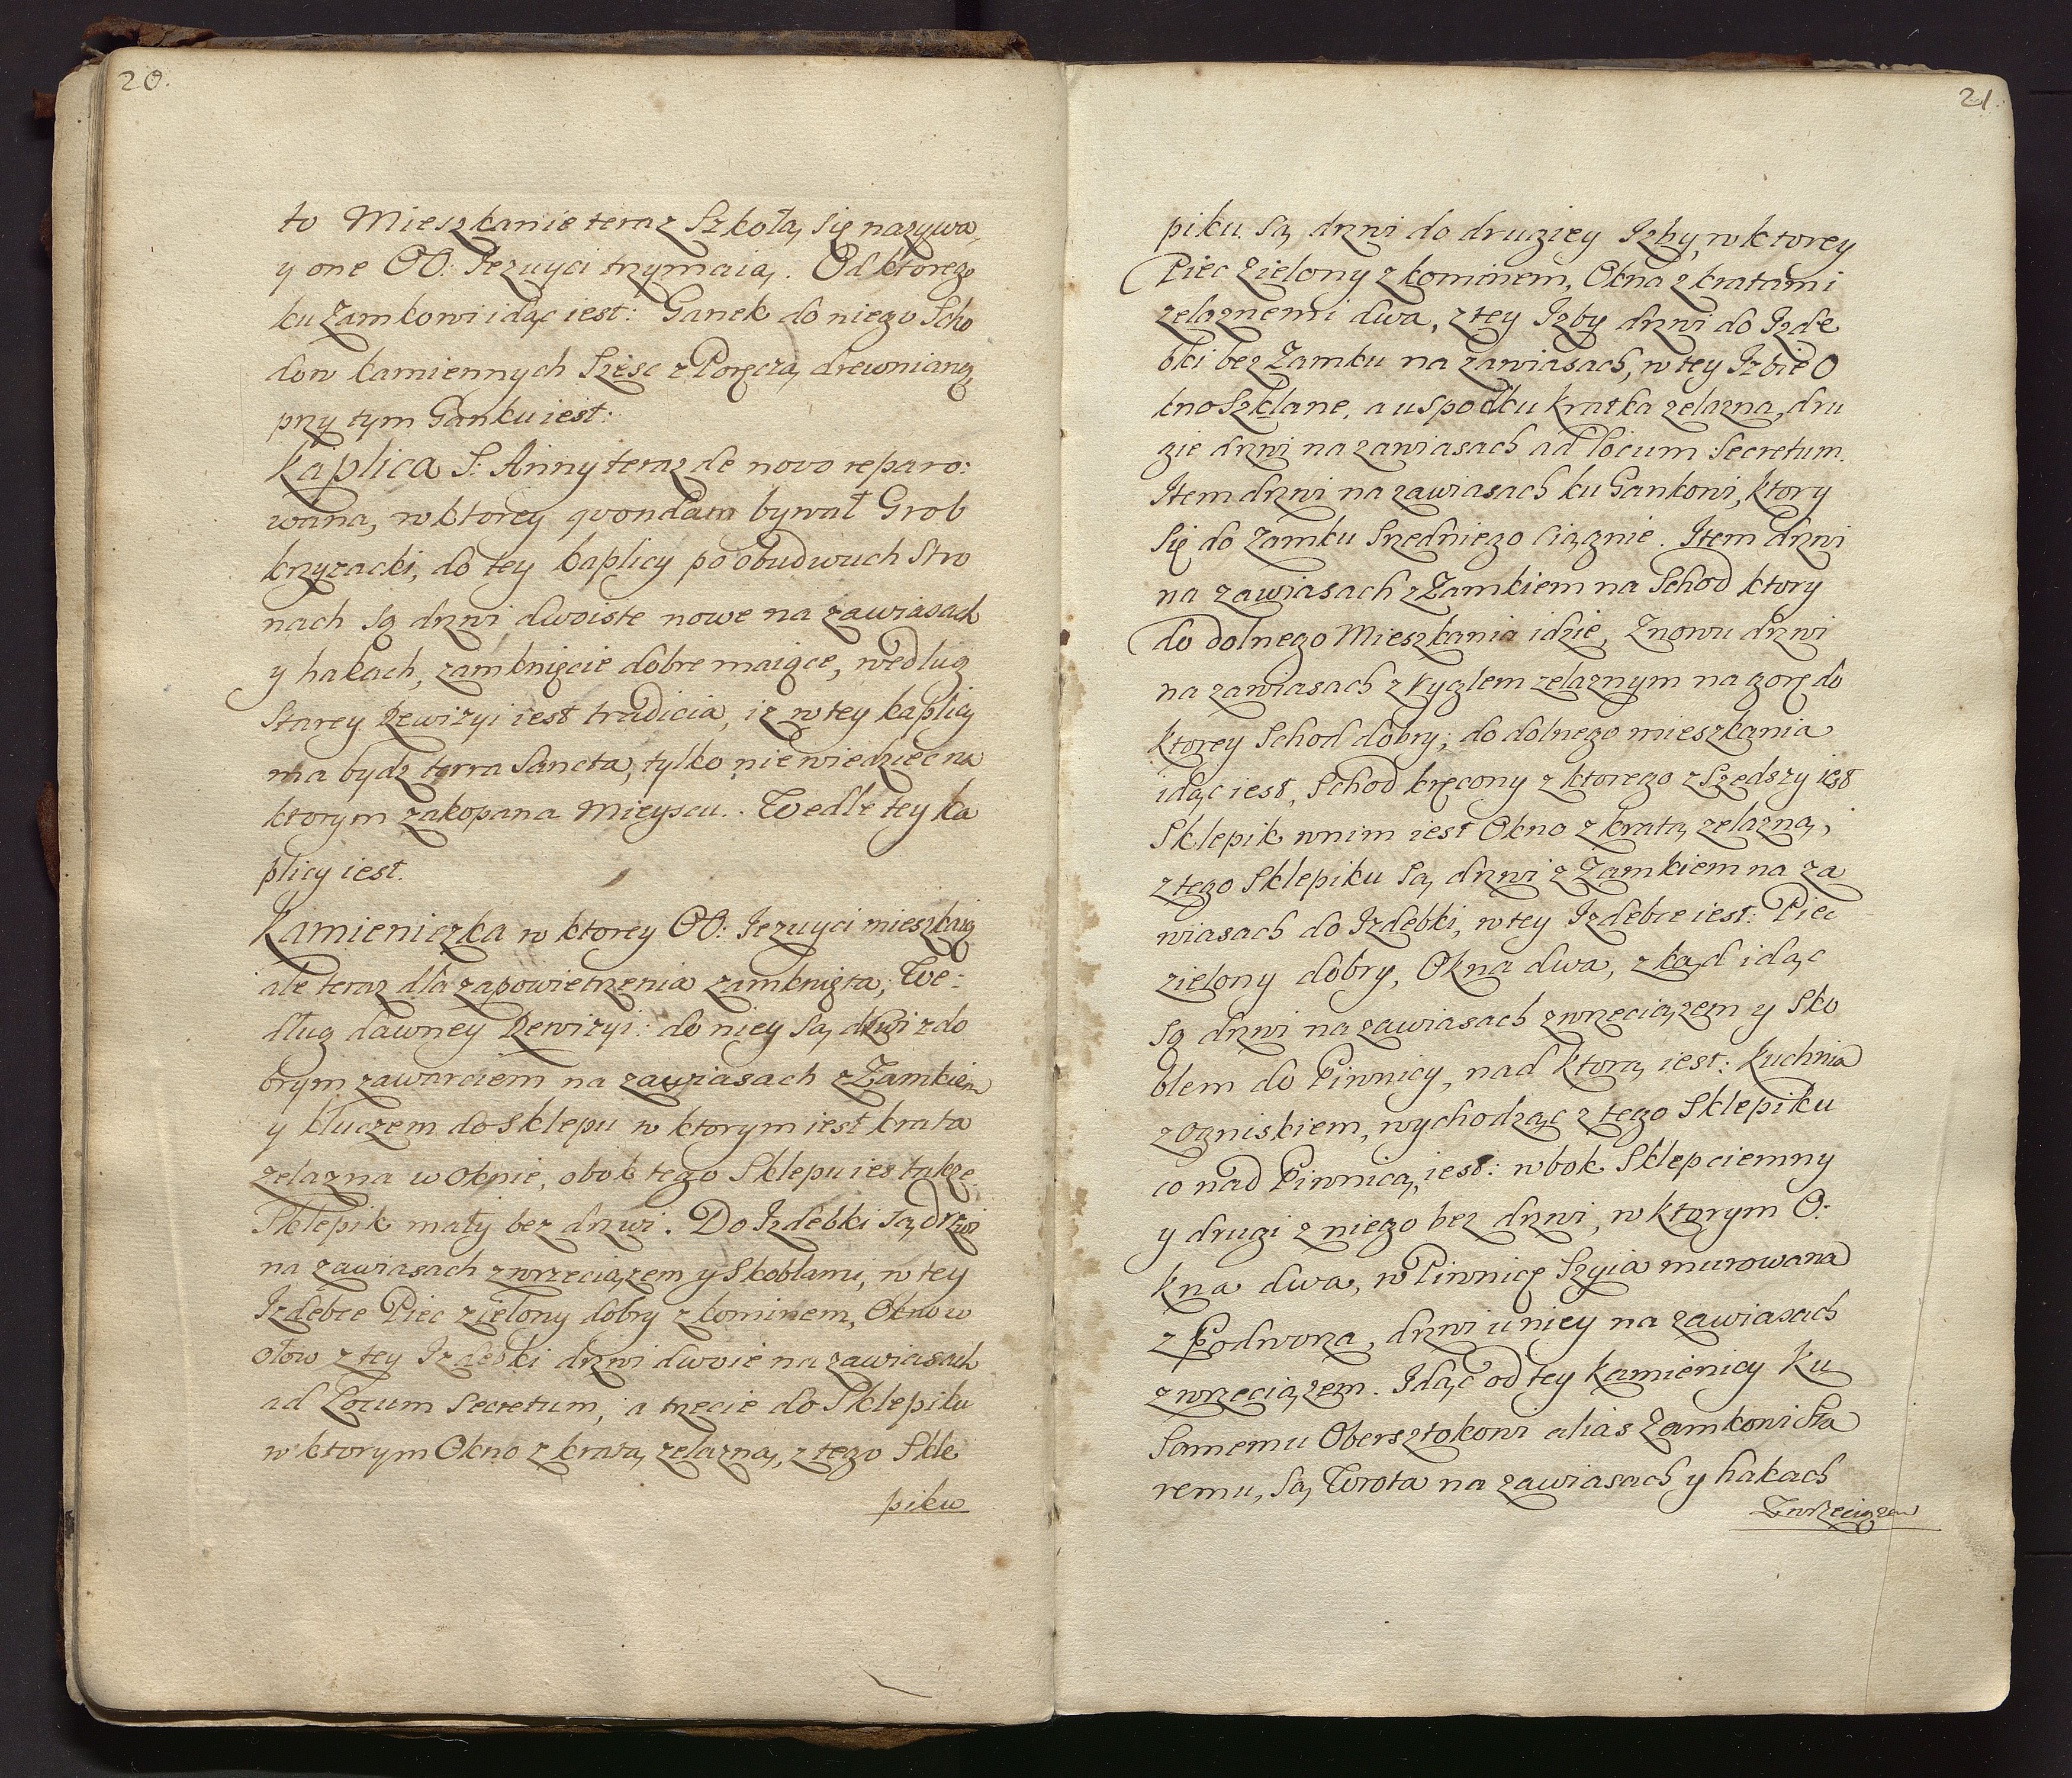 20.
to Mieszkanie teraz Szkołą się nazywa,
y one OO: Jezuyci trzymaią. Od ktorego
ku Zamkowi idąc iest: Ganek do niego Scho
dow kamiennych Szesc z Poręczą drewnianą,
przy tym Ganku iest:
Kaplica S: Anny teraz de novo reparo:
wana, w ktorey qvondam bywał Grob
krzyzacki, do tey kaplicy po obudwuch Stro
nach są drzwi dwoiste nowe na zawiasach
y hakach, zamknięcie dobre maiące, według
Starey Rewizyi iest tradicia, iz w tey kaplicy
ma bydz terra Sancta, tylko nie wiedziec na
ktorym zakopana Mieyscu. Wedle tey ka
plicy iest.
Kamieniczka w ktorey OO: Jezuyci mieszkaią
ale teraz dla zapowietrzenia zamknięta, We:
dług dawney Rewizyi: do niey są drzwi z do
brym zawarciem na zawiasach z Zamkiem
y kluczem do sklepu w ktorym iest krata
zelazna w oknie, obok tego Sklepu ies takze
Sklepik mały bez drzwi. Do Izdebki są drzwi
na zawiasach z wrzeciązem y Skoblami, w tey
Izdebce Piec zielony dobry z kominem, Okno w
ołow z tey Izdebki drzwi dwoie na zawiasach
ad Locum Secretum, a trzecie do Sklepiku
w ktorym Okno z kratą zelazną, z tego Skle
piku
21.
piku. są drzwi do drugiey Izby, w ktorey
Piec zielony z kominem, Okna z kratami
zelaznemi dwa, z tey Izby drzwi do Izde
bki bez Zamku na zawiasach, w tey Izbie O
kno Szklane, a uspodku kratka zelazna, dru
gie drzwi na zawiasach ad locum Secretum.
Item drzwi na zawiasach ku Gankowi, ktory
się do Zamku Sredniego ciągnie. Item drzwi
na zawiasach z Zamkiem na Schod ktory
do dolnego Mieszkania idzie, Znowu drzwi
na zawiasach z Ryglem zelaznym na gorę do
ktorey Schod dobry; do dolnego mieszkania
idąc iest, Schod kręcony z ktorego zszedszy iest
Sklepik w nim iest Okno z kratą zelazną,
z tego Sklepiku są drzwi z Zamkiem na za
wiasach do Izdebki, w tey Izdebce iest: Piec
zielony dobry, Okna dwa, z kąd idąc
są drzwi na zawiasach z wrzeciązem y Sko
blem do Piwnicy, nad ktorą iest: Kuchnia
z ogniskiem, wychodząc z tego Sklepiku
co nad Piwnicą, iest: w bok Sklep ciemny
y drugi z niego bez drzwi, w ktorym O:
kna dwa, w Piwnicę Szyia murowana
z Podworza, drzwi u niey na zawiasach
z wrzeciązem. Idąc od tey Kamienicy Ku
Samemu Obersztokowi alias Zamkowi Sta
remu, są Wrota na zawiasach y hakach
Z wrzeciązem